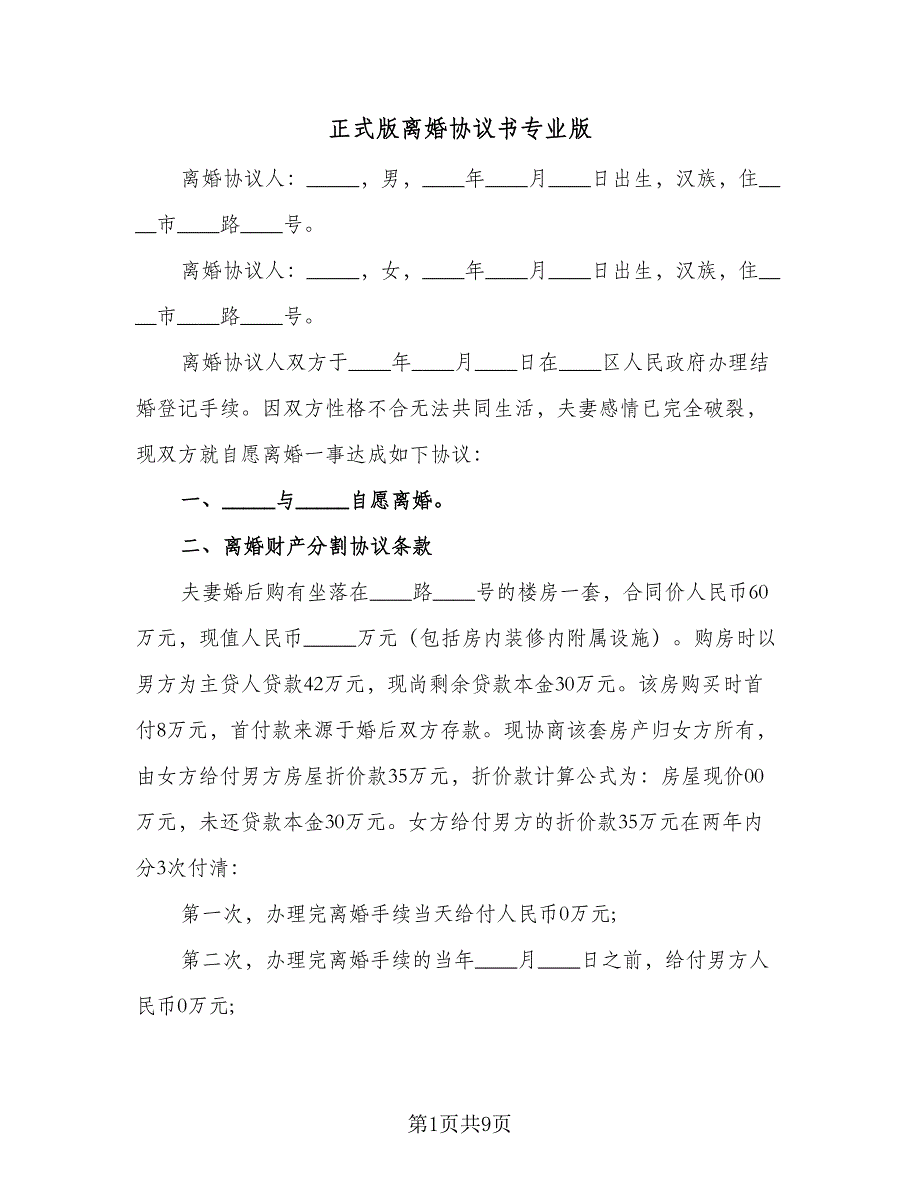 正式版离婚协议书专业版
离婚协议人：_____，男，____年____月____日出生，汉族，住__
__市____路____号。
离婚协议人：_____，女，____年____月____日出生，汉族，住__
__市____路____号。
离婚协议人双方于____年____月____日在____区人民政府办理结
婚登记手续。因双方性格不合无法共同生活，夫妻感情已完全破裂，
现双方就自愿离婚一事达成如下协议：
一、_____与_____自愿离婚。
二、离婚财产分割协议条款
夫妻婚后购有坐落在____路____号的楼房一套，合同价人民币60
万元，现值人民币_____万元（包括房内装修内附属设施）。购房时以
男方为主贷人贷款42万元，现尚剩余贷款本金30万元。该房购买时首
付8万元，首付款来源于婚后双方存款。现协商该套房产归女方所有，
由女方给付男方房屋折价款35万元，折价款计算公式为：房屋现价00
万元，未还贷款本金30万元。女方给付男方的折价款35万元在两年内
分3次付清：
第一次，办理完离婚手续当天给付人民币0万元;
第二次，办理完离婚手续的当年____月____日之前，给付男方人
民币0万元;
第1页共9页